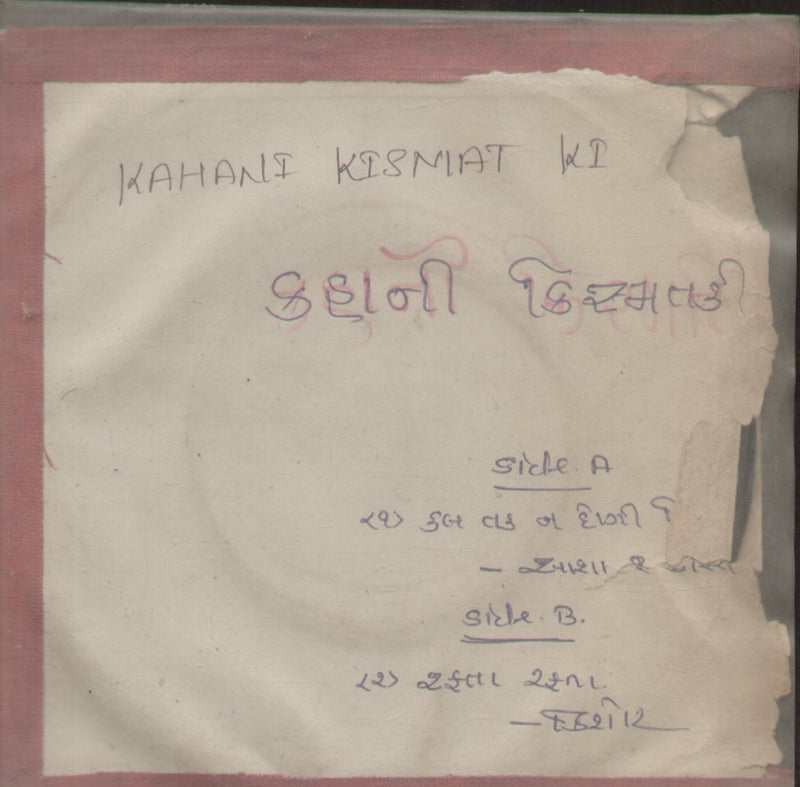 KAHANI KISMAT KI
કહાની કિસ્મતકી
સાઈડ A
(૧) કબ તક ન દેખી
- આશા
સાઈડ B.
(૨) રફતા રફતા.
- કિશોર